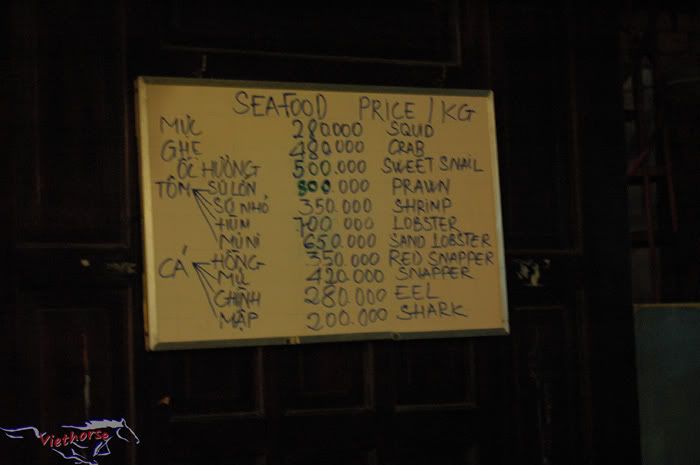 SEAFOOD PRICE / KG
MỰC 280.000 SQUID
GHẸ 480.000 CRAB
ỐC HƯƠNG 500.000 SWEET SNAIL
TÔM SÚ LỚN 800.000 PRAWN
SÚ NHỎ 350.000 SHRIMP
HÙM 700.000 LOBSTER
MŨ NI 650.000 SAND LOBSTER
CÁ HỒNG 350.000 RED SNAPPER
MÚ 420.000 SNAPPER
CHÌNH 280.000 EEL
MẬP 200.000 SHARK
Viethorse